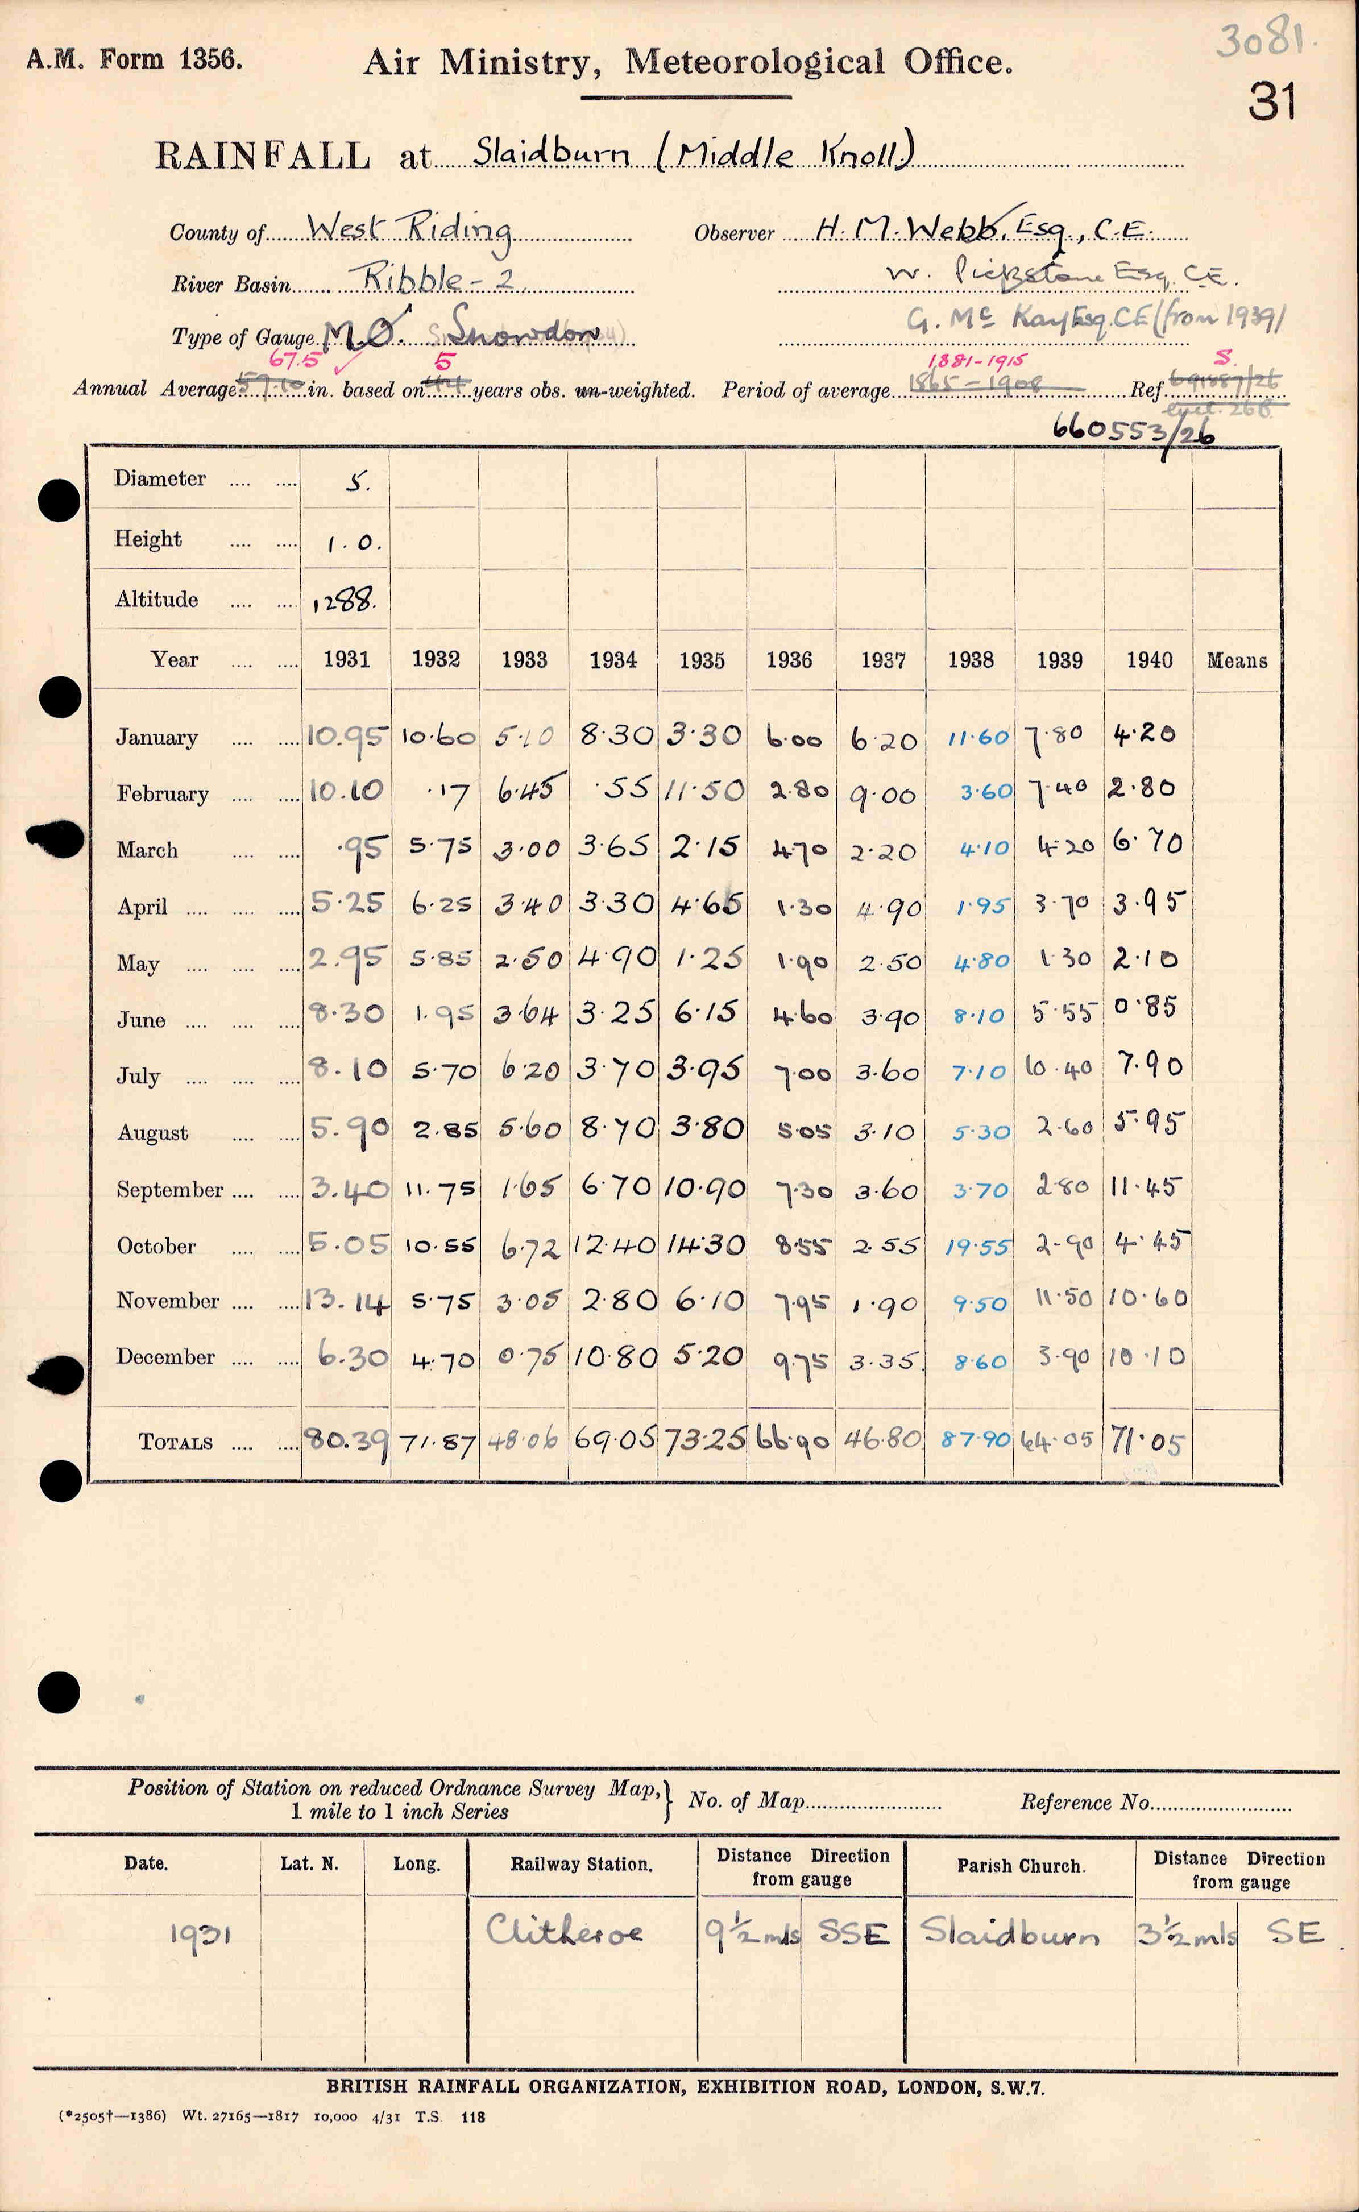 3081.
A.M. Form 1356. Air Ministry, Meteorological Office.
31
RAINFALL at Slaidburn (Middle Knoll)
County of West Riding Observer H. M. Webb, Esq., C.E.
River Basin Ribble - 2 W. Pickstone Esq. C.E.
Type of Gauge M.O. Snowdon G. Mc Kay Esq. CE (from 1939)
67.5 5 1881-1915 S.
Annual Average 59.10 in. based on 44 years obs. un-weighted. Period of average 1865-1908 Ref. 691887/26
660553/26
Diameter 5.
Height 1.0.
Altitude 1288.
Year 1931 1932 1933 1934 1935 1936 1937 1938 1939 1940 Means
January 10.95 10.60 5.10 8.30 3.30 6.00 6.20 11.60 7.80 4.20
February 10.10 .17 6.45 .55 11.50 2.80 9.00 3.60 7.40 2.80
March .95 5.75 3.00 3.65 2.15 4.70 2.20 4.10 4.20 6.70
April 5.25 6.25 3.40 3.30 4.65 1.30 4.90 1.95 3.70 3.95
May 2.95 5.85 2.50 4.90 1.25 1.90 2.50 4.80 1.30 2.10
June 8.30 1.95 3.64 3.25 6.15 4.60 3.90 8.10 5.55 0.85
July 8.10 5.70 6.20 3.70 3.95 7.00 3.60 7.10 10.40 7.90
August 5.90 2.85 5.60 8.70 3.80 5.05 3.10 5.30 2.60 5.95
September 3.40 11.75 1.65 6.70 10.90 7.30 3.60 3.70 2.80 11.45
October 5.05 10.55 6.72 12.40 14.30 8.55 2.55 19.55 2.90 4.45
November 13.14 5.75 3.05 2.80 6.10 7.95 1.90 9.50 11.50 10.60
December 6.30 4.70 0.75 10.80 5.20 9.75 3.35 8.60 3.90 10.10
TOTALS 80.39 71.87 48.06 69.05 73.25 66.90 46.80 87.90 64.05 71.05
Position of Station on reduced Ordnance Survey Map, } No. of Map Reference No.
1 mile to 1 inch Series
Date. Lat. N. Long. Railway Station. Distance Direction from gauge Parish Church. Distance Direction from gauge
1931 Clitheroe 9½ mls SSE Slaidburn 3½ mls SE
BRITISH RAINFALL ORGANIZATION, EXHIBITION ROAD, LONDON, S.W.7.
(*2505†—1386) Wt. 27165—1817 10,000 4/31 T.S. 118